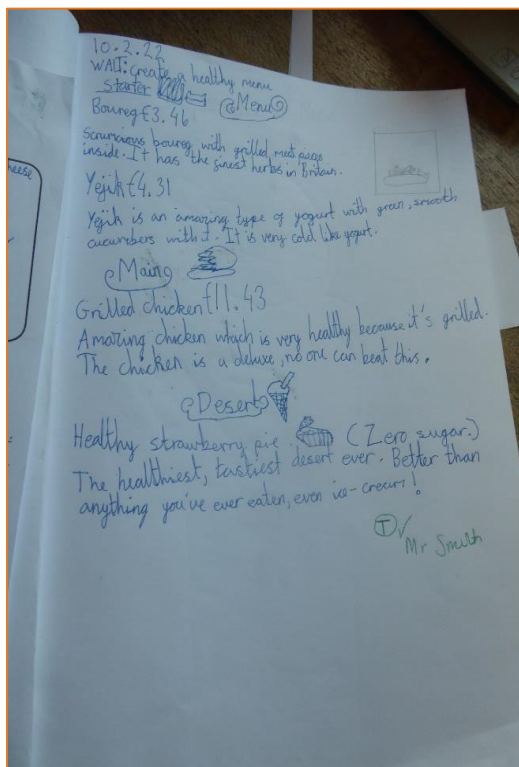 10.2.22
WALT: create a healthy menu
starter
Menu
Boureg £3.46
Scrumcious boureg with grilled meat pieces
inside. It has the finest herbs in Britain.
Yejik £4.31
Yejik is an amazing type of yogurt with green, smooth
cucumbers with it. It is very cold like yogurt.
Main
Grilled chicken £11.43
Amazing chicken which is very healthy because it's grilled.
The chicken is a deluxe, no one can beat this.
Desert
Healthy strawberry pie (Zero sugar.)
The healthiest, tastiest desert ever. Better than
anything you've ever eaten, even ice-cream!
T
Mr Smith
heese